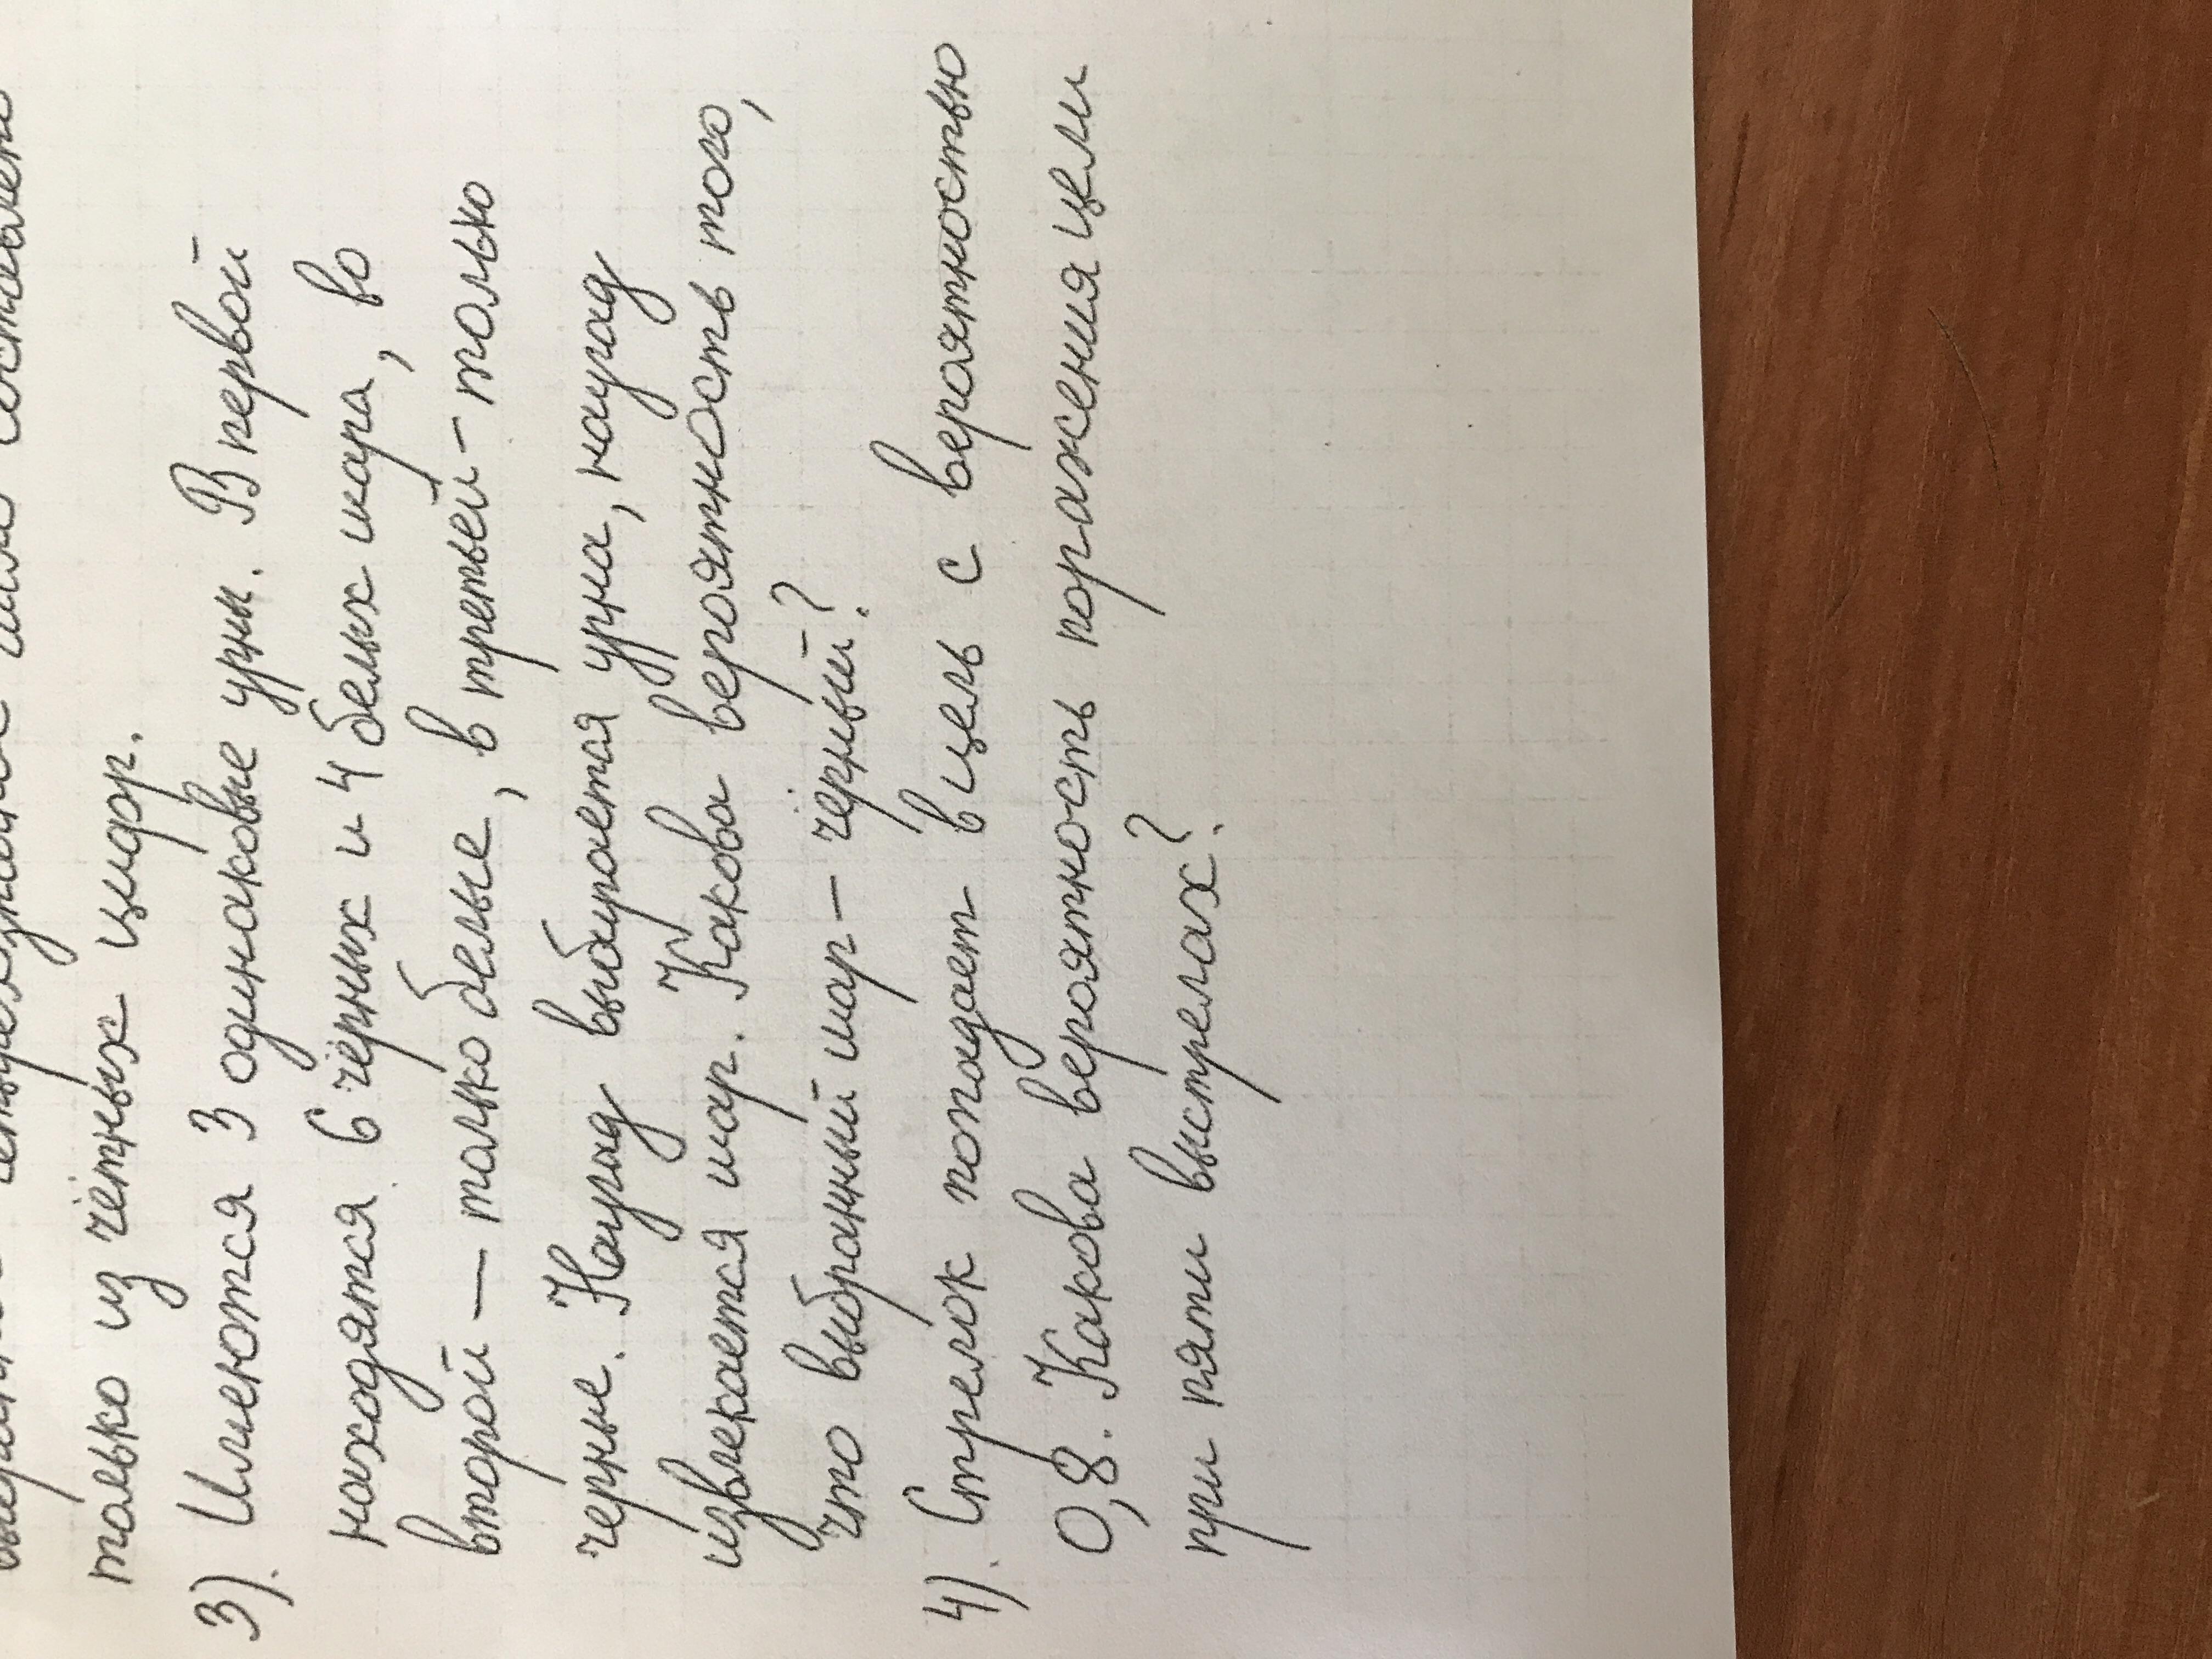 только из чётных цифр.
3). Имеются 3 одинаковые урны. В первой
находятся 6 чёрных и 4 белых шара, во
второй — только белые, в третьей - только
чёрные. Наугад выбирается урна, наугад
извлекается шар. Какова вероятность того,
что выбранный шар — чёрный?
4). Стрелок попадает в цель с вероятностью
0,8. Какова вероятность поражения цели
при пяти выстрелах?